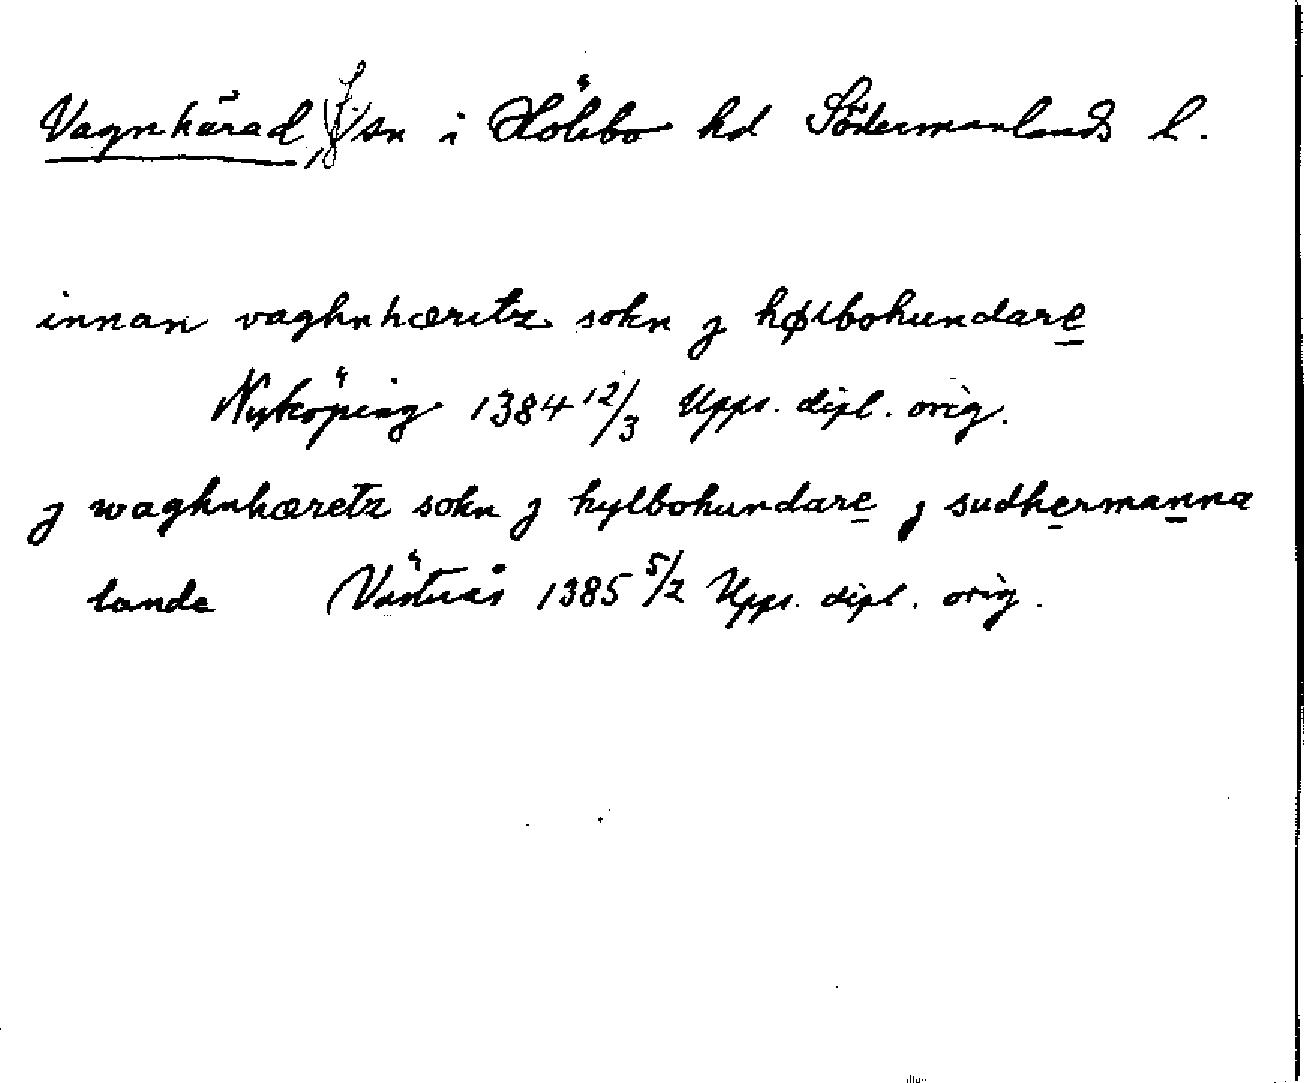 Vagnhärad, sn i Hölebo hd Södermanlands l.
innan vaghnhæretz sokn j hølbohundare
Nyköping 1384 12/3 Upps. dipl. orig.
j waghnhæretz sokn j hylbohundare j sudhermanna
lande Västerås 1385 5/2 Upps. dipl. orig.